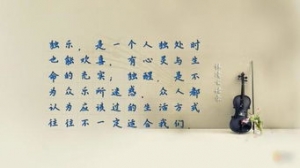 独乐，是一个人独处时
也能欢喜，有心灵与生
命的充实；独醒，是不
为众乐所迷惑，众人都
认为应该过的生活方式
往往不一定适合我们。